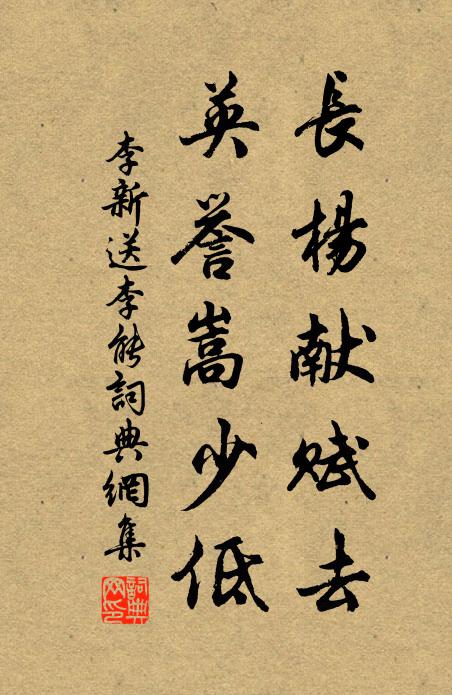 長楊献賦去
英誉嵩少低
李新送李能詞典網集
詞典网印